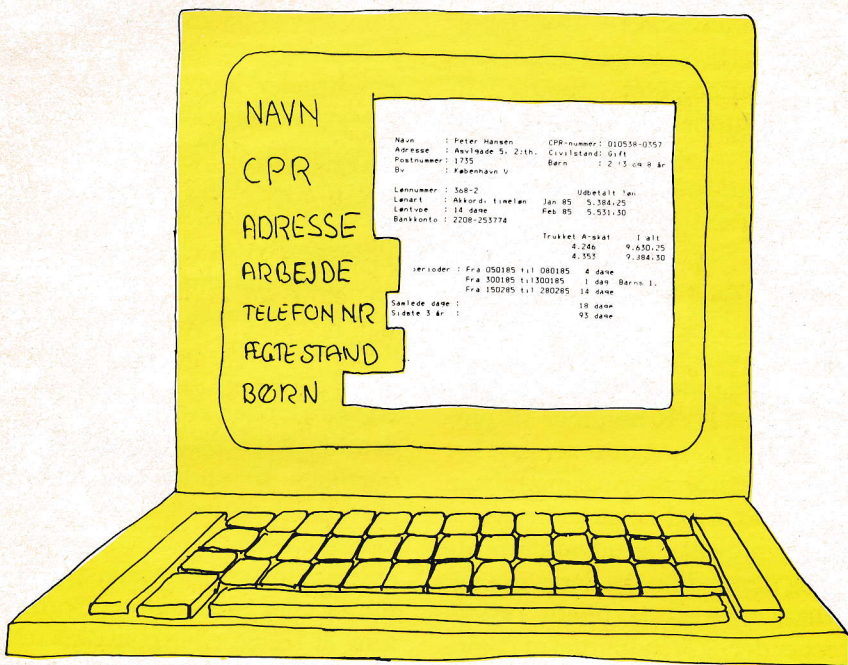 NAVN
CPR
ADRESSE
ARBEJDE
TELEFON NR
ÆGTESTAND
BØRN
Navn : Peter Hansen CPR-nummer: 010538-0357
Adresse : Asylgade 5, 2.th. Civilstand: Gift
Postnummer: 1735 Børn : 2 og 8 år
By : København V
Lønnummer : 368-2 Udbetalt løn
Lønart : Akkord, timeløn Jan 85 5.384,25
Løntype : 14 dage Feb 85 5.531,30
Bankkonto : 2208-253774
Trukket A-skat I alt
4.246 9.630,25
4.353 9.384,30
perioder : Fra 050185 til 080185 4 dage
Fra 300185 til300185 1 dag Barns 1.
Fra 150285 til 280285 14 dage
Samlede dage : 18 dage
Sidste 3 år : 93 dage